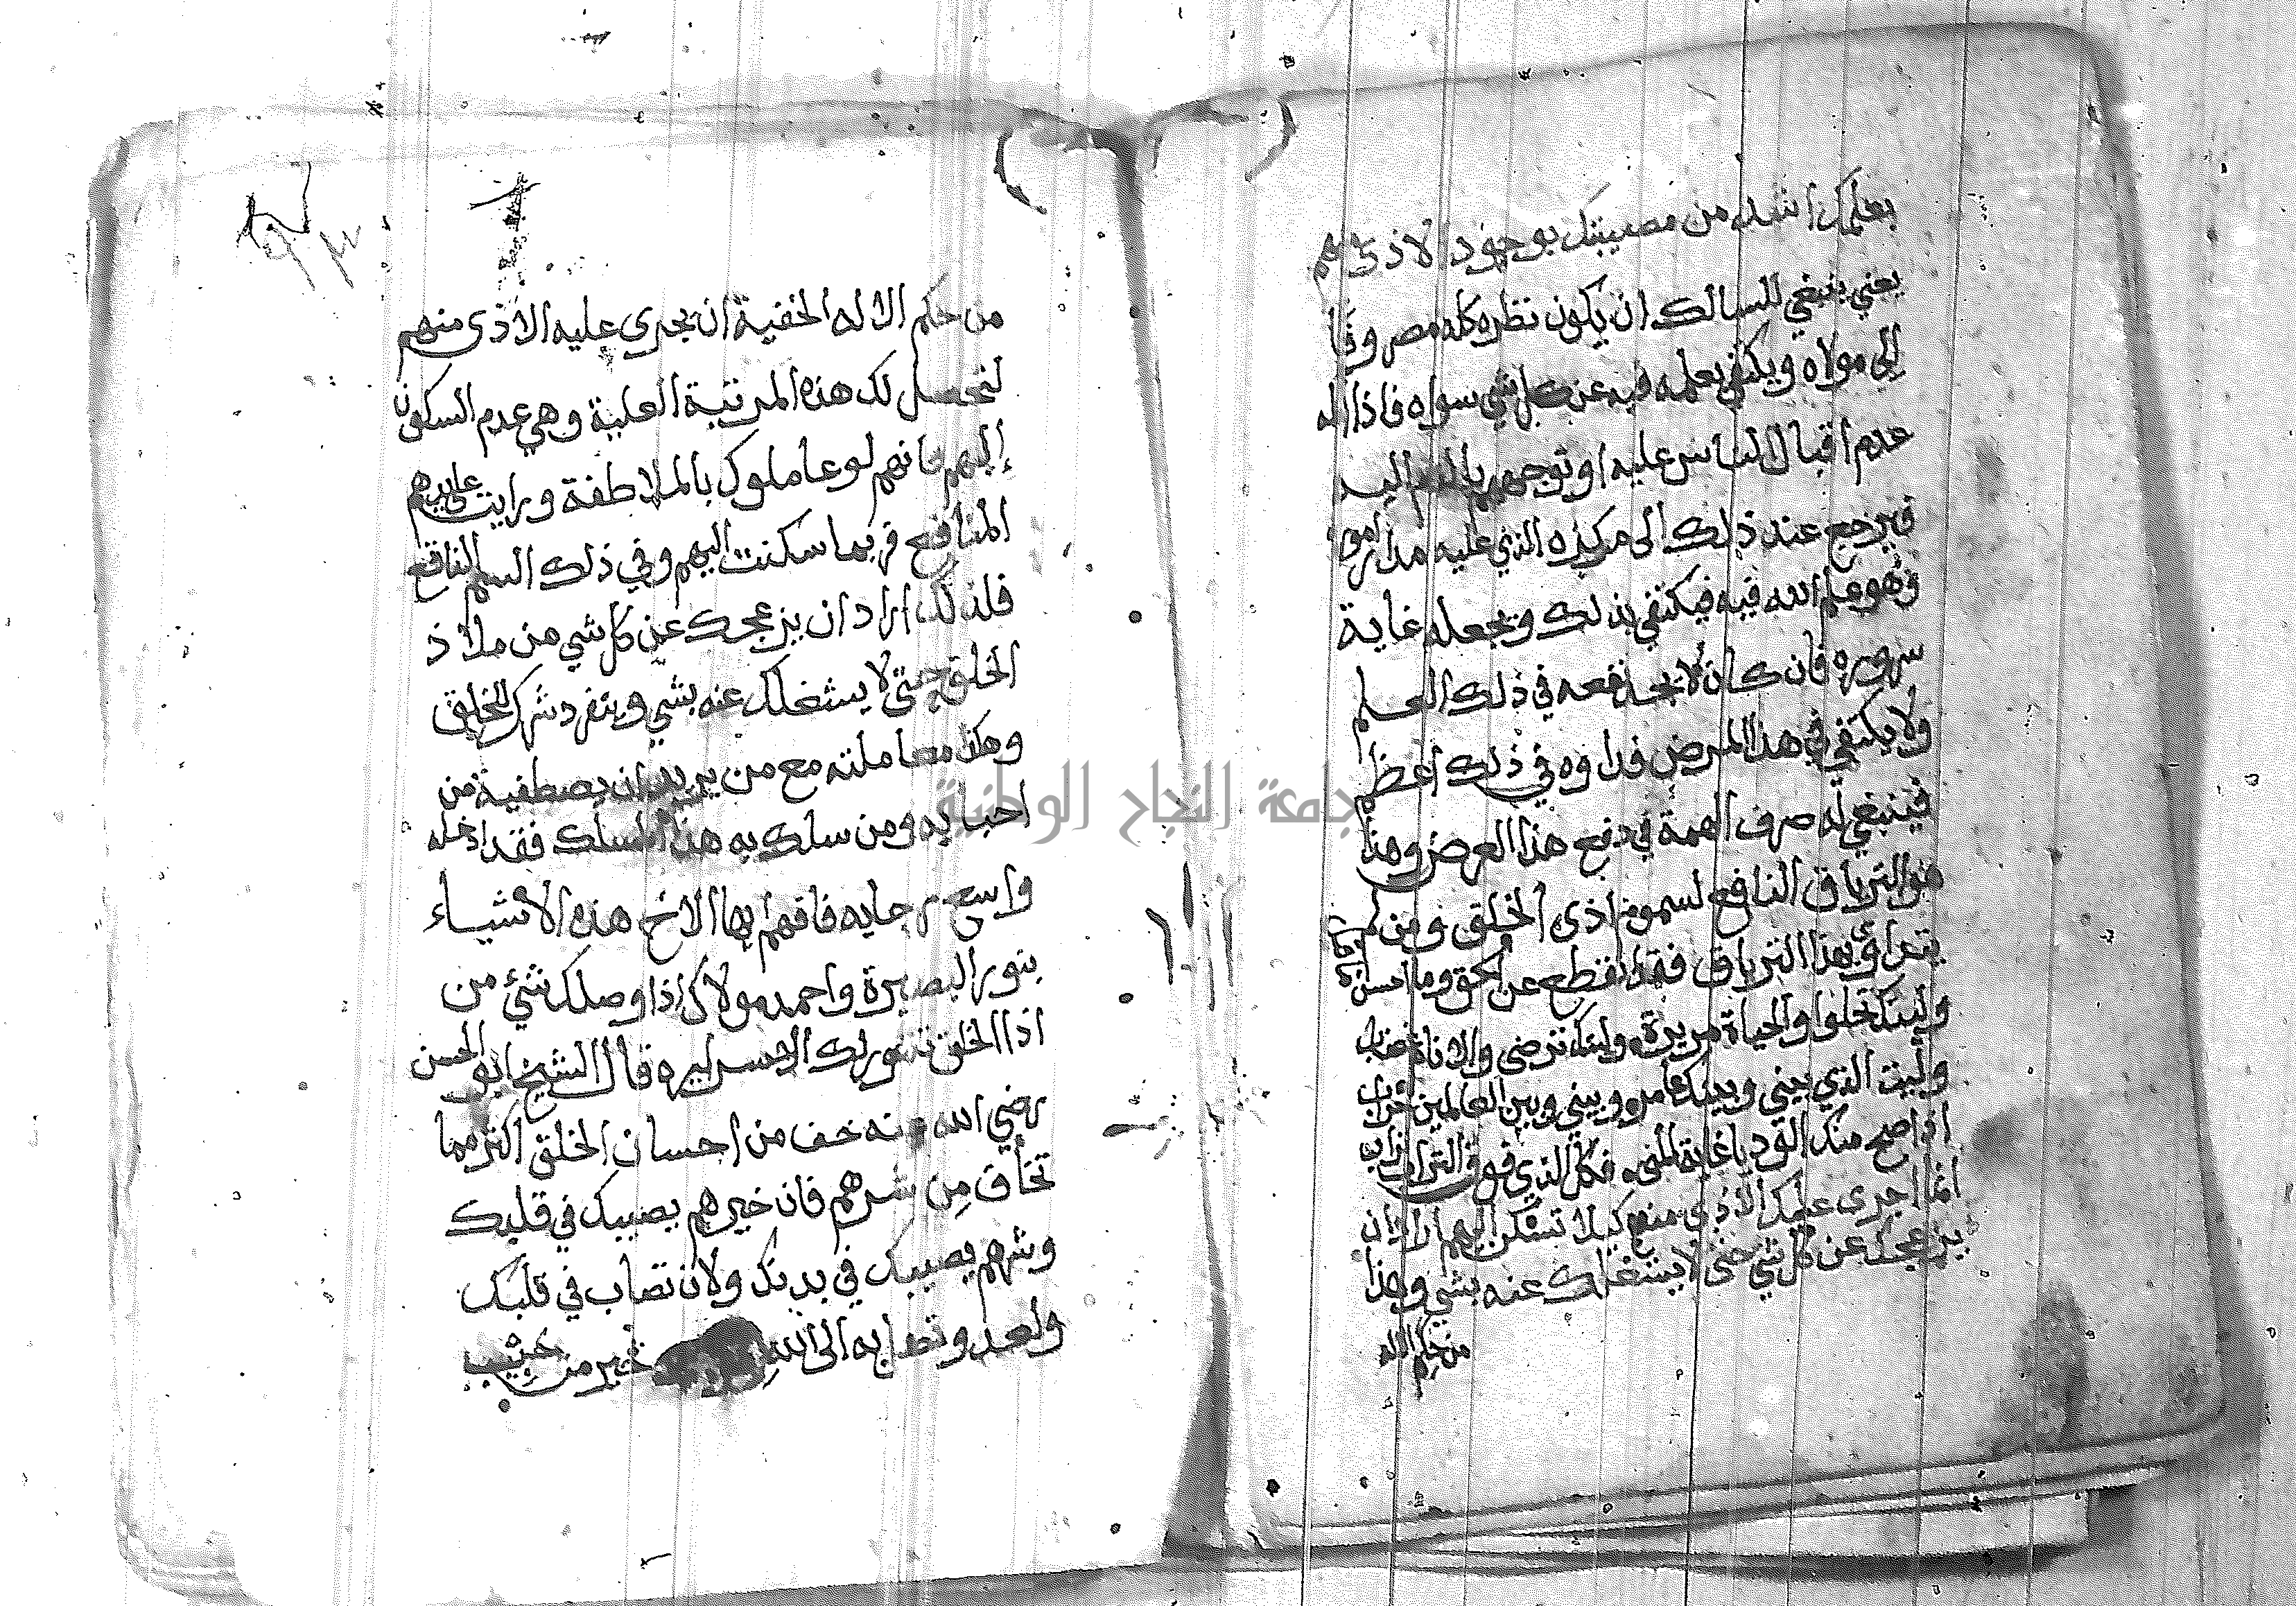 بعلمك اشد من مصيبتك بوجود الاذى منهم
يعني ينبغي للسالك ان يكون نظره كله مصروفا
الى مولاه ويكتفي بعلمه فيه عن كل شي سواه فاذا المه
عدم اقبال الناس عليه او توجههم بالذم اليه
فيرجع عند ذلك الى مركزه الذي عليه مدار امور
وهو علم الله فيه فيكتفي بذلك ويجعله غاية
سروره فان كان لا يجد نفعه في ذلك العلم
ولا يكتفي في هذا المرض فداوه في ذلك اعظم
فينبغي له صرف الهمة في دفع هذا العرض وهذا
هو الترياق النافع لسموم اذى الخلق ومن لم
يتداوى بهذا الترياق فقد انقطع عن الحق وما احسن
وليتك تحلوا والحياة مريرة وليتك ترضى والانام غضاب
وليت الذي بيني وبينك عامر وبيني وبين العالمين خراب
اذا صح منك الود يا غاية المنى فكل الذي فوق التراب تراب
انما اجرى عليك الاذى منهم كيلا تسكن اليهم اراد ان
يزعجك عن كل شي حتى لا يشغلك عنه بشي وهذا
من حكم الاله
من حكم الاله الخفية ان يجري عليه الاذى منهم
لتحصل لك هذه المرتبة العلية وهي عدم السكون
إليهم فانهم لو عاملوك بالملاطفة ورايت على يدهم
المنافع فربما سكنت اليهم وفي ذلك السم الناقع
فلذلك اراد ان يزعجك عن كل شي من ملاذ
الخلق حتى لا يشغلك عنه بشي وينفرد شرك الخليق
وهكذا معاملته مع من يريد ان يصطفيه من
احبابه ومن سلك به هذا المسلك فقد ادخله
واسع رحابه فافهم ايها الاخ هذه الاشياء
بنور البصيرة واحمد مولاك اذا وصلك شئ من
اذا الخلق قال الشيخ ابو الحسن
رضي الله عنه خف من احسان الخلق اكثر مما
تخاف من شرهم فان خيرهم يصيبك في قلبك
وشرهم يصيبك في بدنك ولان تصاب في قلبك
ولعدو تصل به الى الله خير من حبيب
جامعة النجاح الوطنية